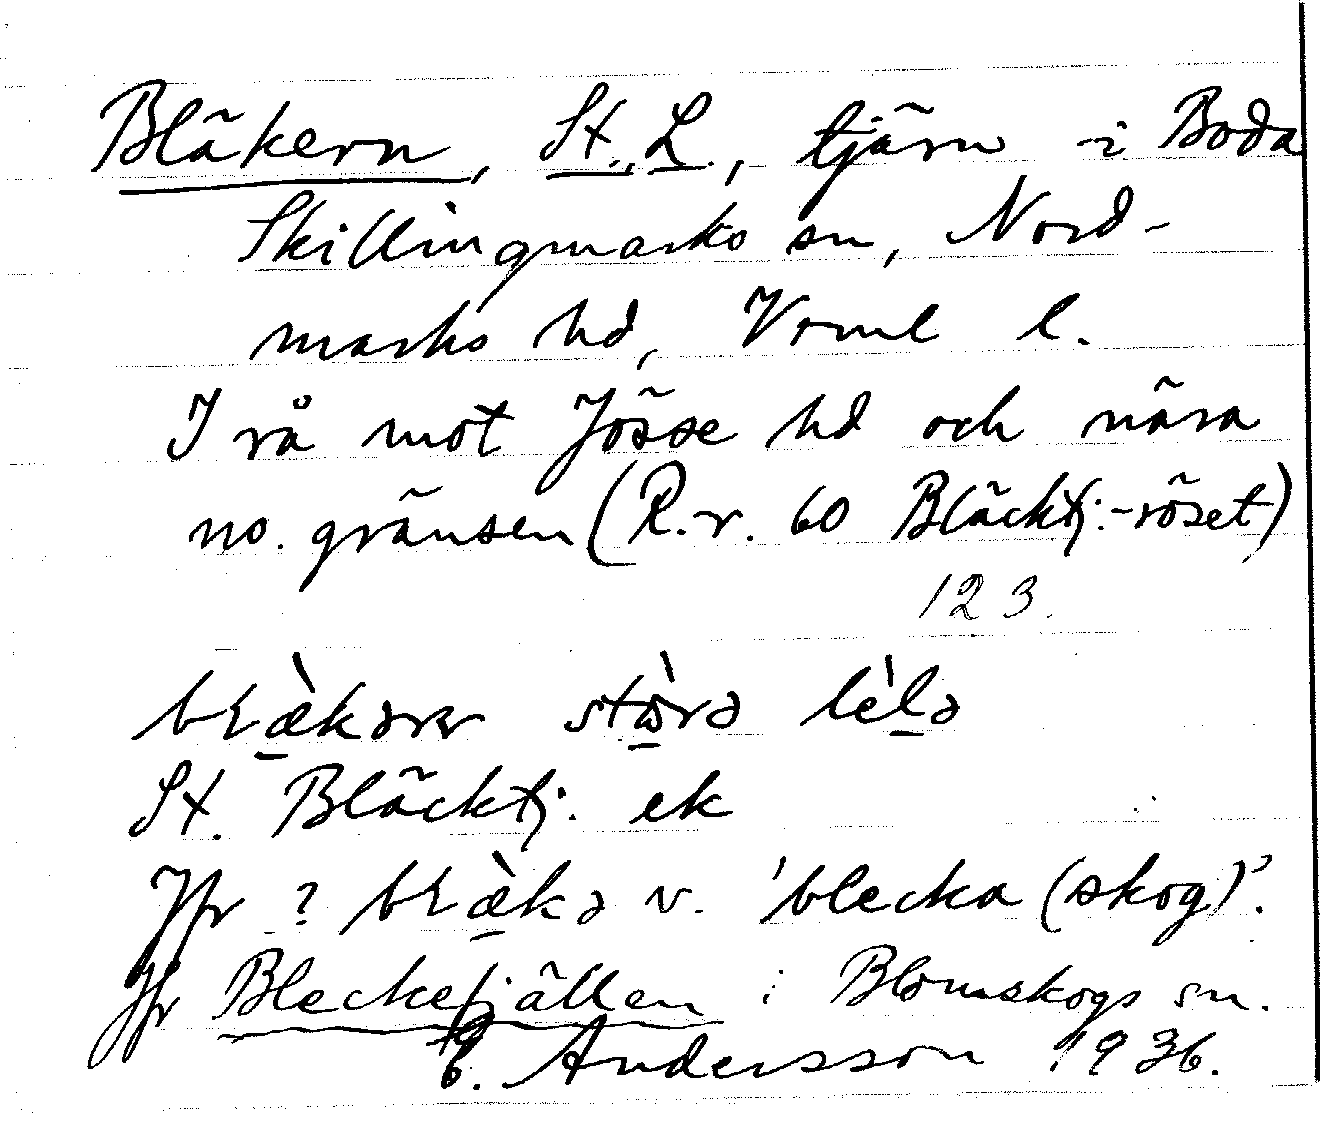 Bläkern, St., L., tjärn i Boda
Skillingmarks sn, Nord-
marks hd, Vrml l.
I rå mot Jösse hd och nära
no. gränsen (R.-r. 60 Bläcktj.-röset)
123.
St. Bläcktj. ek
Jfr ? v. 'blecka (skog)'.
Jfr Bleckefjällen i Blomskogs sn.
E. Andersson 1936.